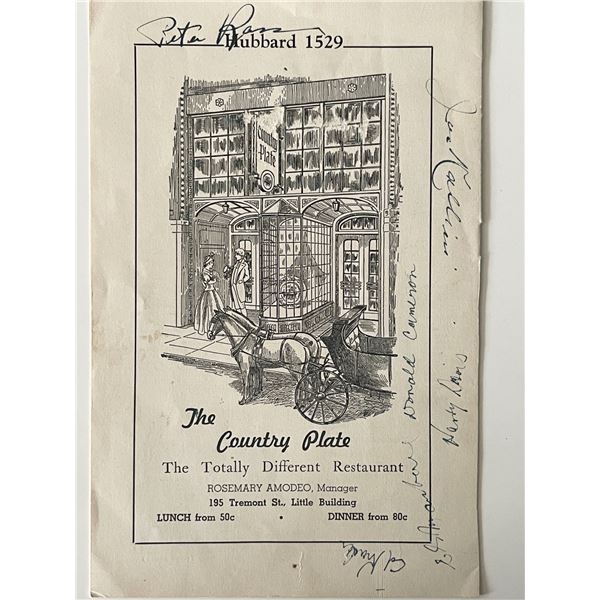 Peter
Hubbard 1529
Country
Plate
The
Country Plate
The Totally Different Restaurant
ROSEMARY AMODEO, Manager
195 Tremont St., Little Building
LUNCH from 50c • DINNER from 80c
Donald Cameron